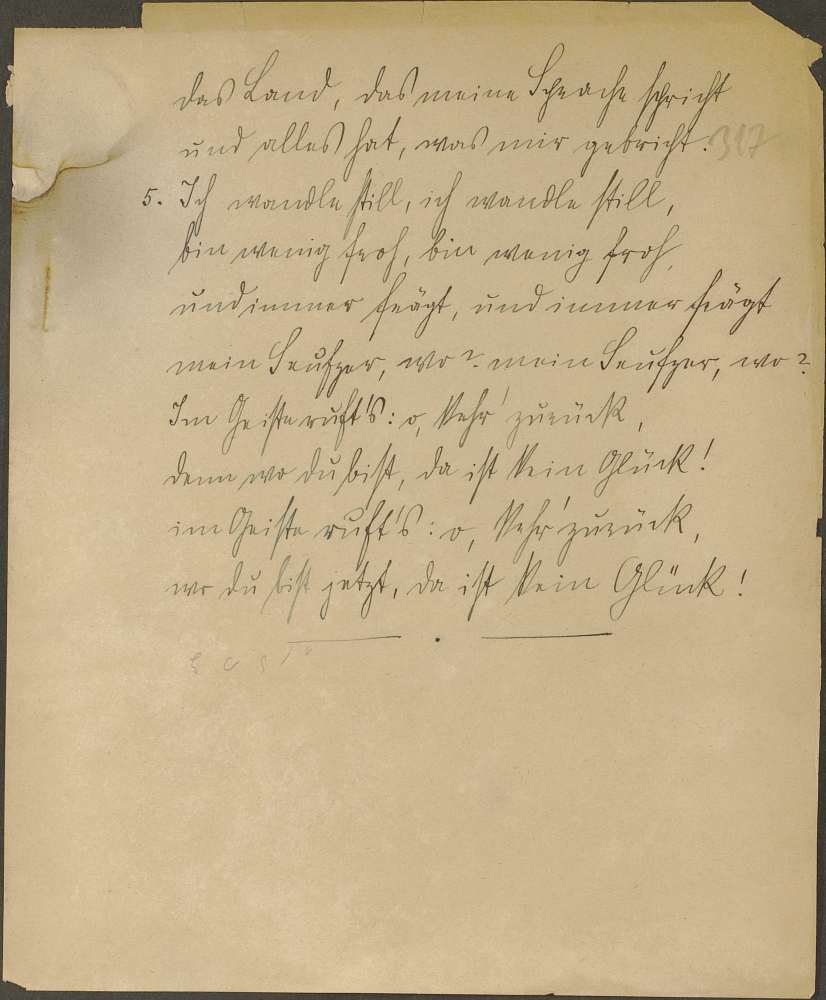 das Land, das meine Sprache spricht
und alles hat, was mir gebricht.
317
5. Ich wandle still, ich wandle still,
bin wenig froh, bin wenig froh,
und immer frägt, und immer frägt
mein Seufzer, wo? mein Seufzer, wo?
Im Geiste ruft's: o, kehr' zurück,
denn wo du bist, da ist kein Glück!
im Geiste ruft's: o, kehr' zurück,
wo du bist jetzt, da ist kein Glück!